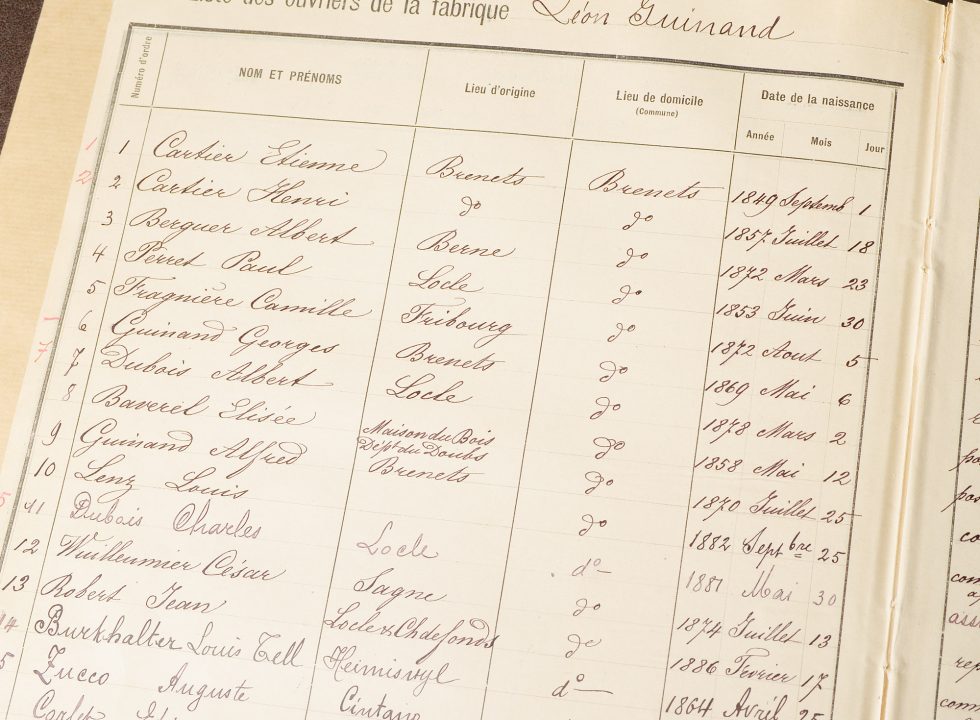 Liste des ouvriers de la fabrique Léon Guinand
Numéro d'ordre NOM ET PRÉNOMS Lieu d'origine Lieu de domicile (Commune) Date de la naissance
Année Mois Jour
1 Cartier Etienne Brenets Brenets 1849 Septemb 1
2 Cartier Henri do do 1857 Juillet 18
3 Berguer Albert Berne do 1872 Mars 23
4 Perret Paul Locle do 1853 Juin 30
5 Fragnière Camille Fribourg do 1872 Aout 5
6 Guinand Georges Brenets do 1869 Mai 6
7 Dubois Albert Locle do 1878 Mars 2
8 Baverel Elisée Maison du Bois Dépt du Doubs do 1858 Mai 12
9 Guinand Alfred Brenets do 1870 Juillet 25
10 Lenz Louis do 1882 Septbre 25
11 Dubois Charles Locle do 1881 Mai 30
12 Wuilleumier César Sagne do 1874 Juillet 13
13 Robert Jean Locle & Chdefonds do 1886 Fevrier 17
14 Burkhalter Louis Tell Heimiswyl do 1864 Avril 25
5 Zucco Auguste Cintano